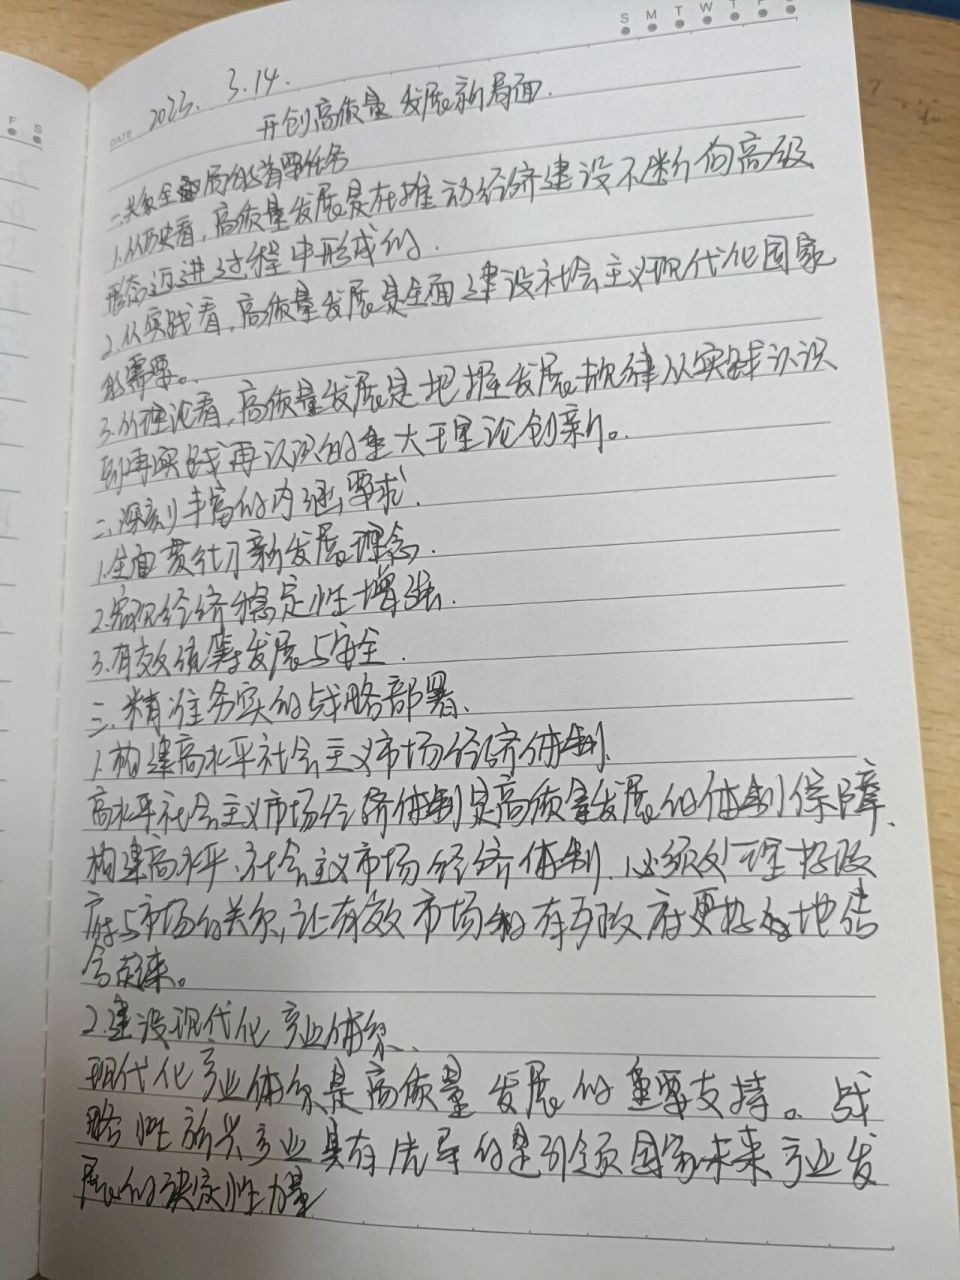 S M T W T F S
F S
DATE 2023. 3.14.
开创高质量发展新局面.
一.关系全局的首要任务
1.从历史看,高质量发展是在推动经济建设不断向高级
形态迈进过程中形成的.
2.从实践看,高质量发展是全面建设社会主义现代化国家
的需要。
3.从理论看,高质量发展是把握发展规律从实践认识
到再实践再认识的重大理论创新。
二.深刻丰富的内涵要求.
1.全面贯彻新发展理念.
2.实现经济稳定性增长.
3.有效统筹发展与安全.
三.精准务实的战略部署.
1.构建高水平社会主义市场经济体制.
高水平社会主义市场经济体制是高质量发展的体制保障.
构建高水平社会主义市场经济体制.必须处理好政
府与市场的关系,让有效市场和有为政府更好地结
合起来。
2.建设现代化产业体系.
现代化产业体系是高质量发展的重要支持。战
略性新兴产业具有先导的是引领国家未来产业发
展的决定性力量